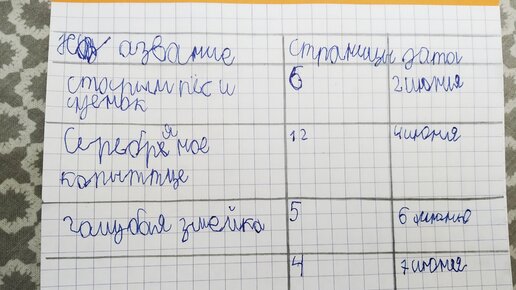 название страницы дата
старый пёс и 6 2 июня
щенок
Серебряное 12 4 июня
копытце
голубая змейка 5 6 июнью
4 7 июня